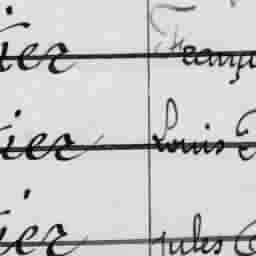 ier Franç
ier Louis
ier Jules